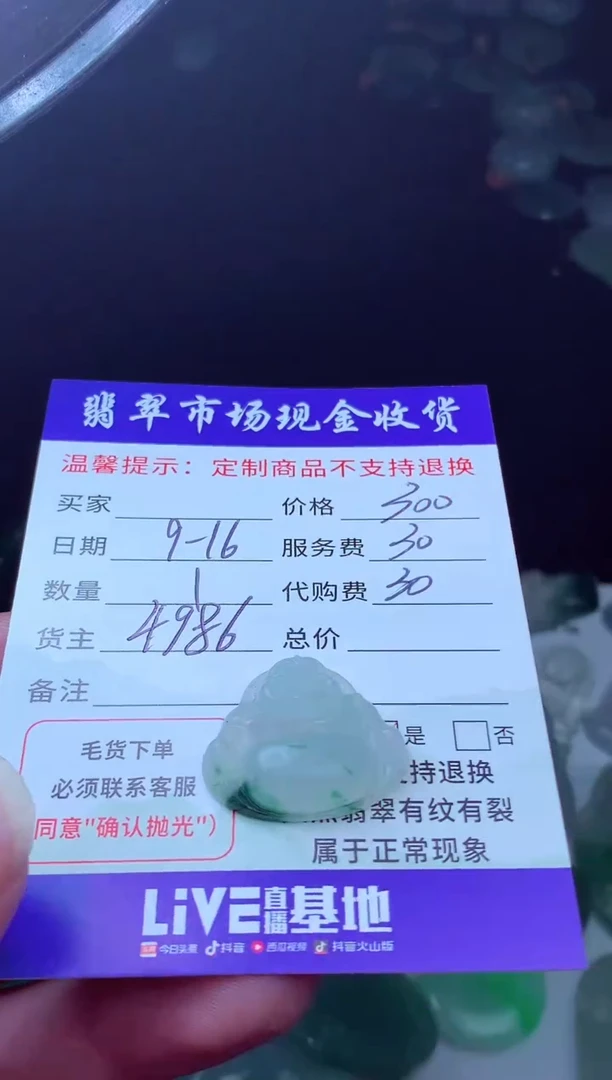 翡翠市场现金收货
温馨提示：定制商品不支持退换
买家 价格 300
日期 9-16 服务费 30
数量 1 代购费 30
货主 4986 总价
备注
是 否
毛货下单
必须联系客服
同意"确认抛光"）
持退换
翡翠有纹有裂
属于正常现象
LiVE直播基地
今日头条 抖音 西瓜视频 抖音火山版